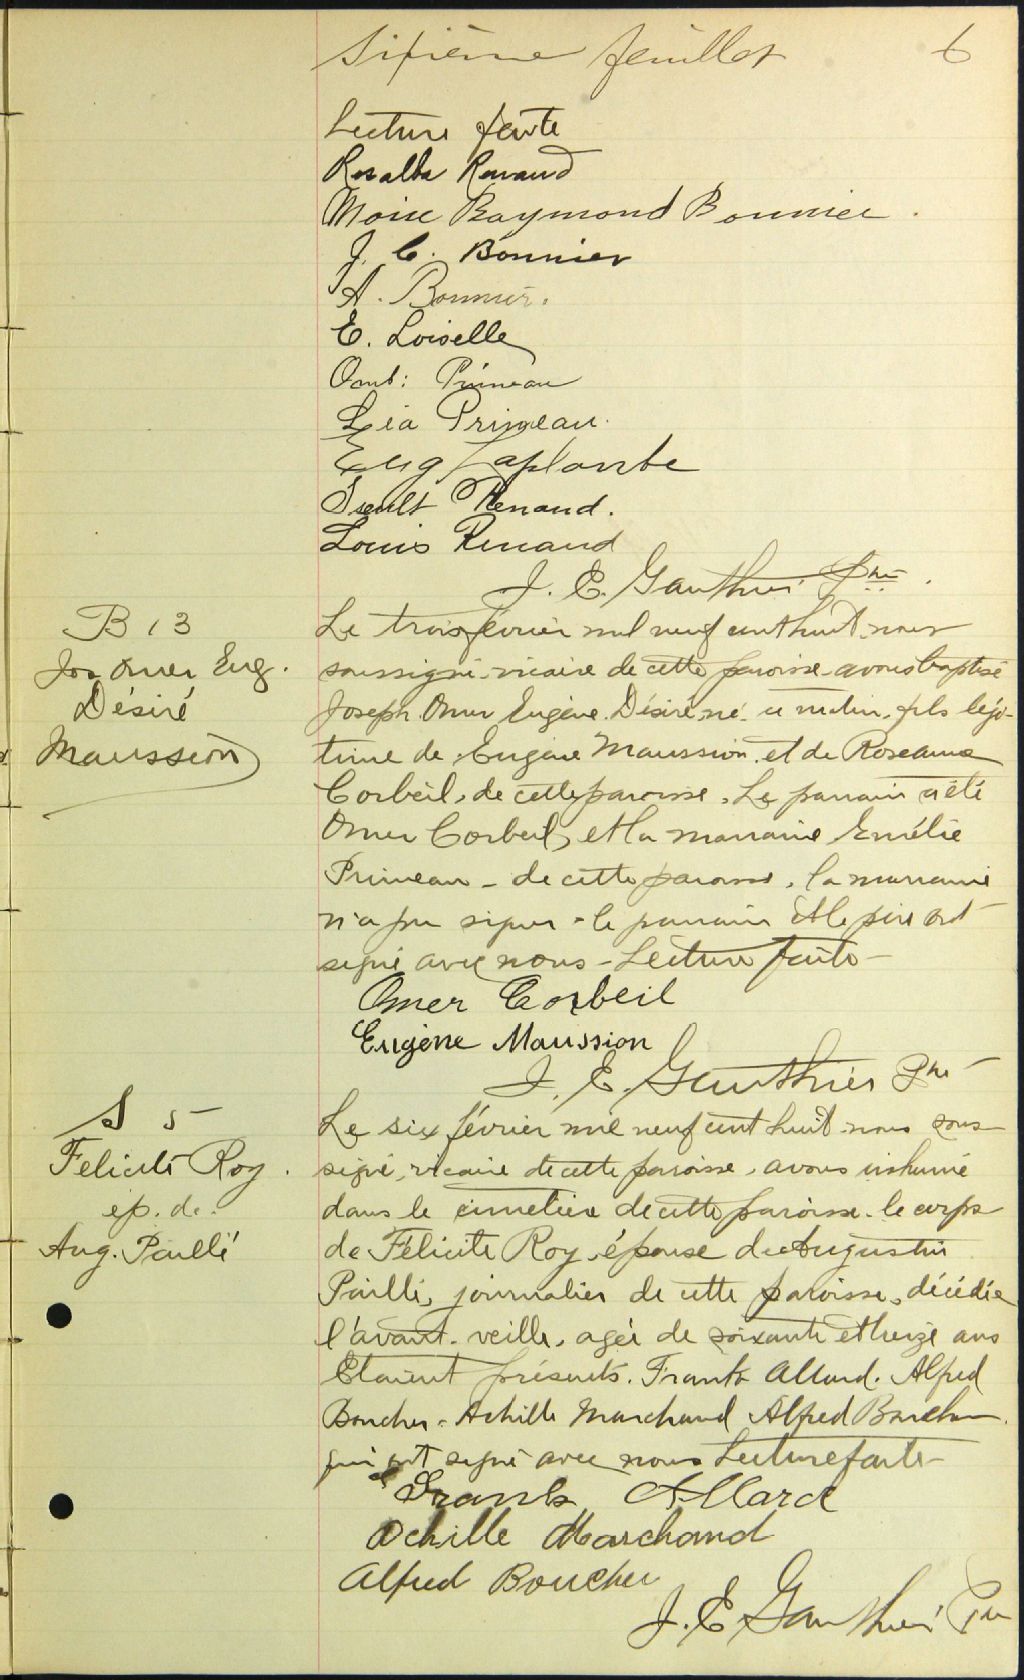 Sixième feuillet 6
Lecture faite
Rosalba Renaud
Moise Raymond Bonnier.
J. C. Bonnier
A. Bonnier.
E. Loiselle
Primeau
Léa Primeau.
Eug Laplante
Renaud.
Louis Renaud
J. E. Gauthier Ptre.
B 13
Jos Omer Eug.
Désiré
Maussion
Le trois février mil neuf cent huit nous
soussigné vicaire de cette paroisse avons baptisé
Joseph Omer Eugène Désiré, né ce matin, fils légi-
time de Eugène Maussion et de Roseanna
Corbeil, de cette paroisse. Le parrain a été
Omer Corbeil, et la marraine Emélie
Primeau - de cette paroisse, la marraine
n'a pu signer - le parrain et le père ont
signé avec nous - Lecture faite -
Omer Corbeil
Eugène Maussion
J. E. Gauthier Ptre
S 5
Felicité Roy.
ép. de.
Aug. Paillé
Le six février mil neuf cent huit nous sous-
signé, vicaire de cette paroisse, avons inhumé
dans le cimetière de cette paroisse le corps
de Félicité Roy, épouse de Augustin
Paillé, journalier de cette paroisse, décédée
l'avant-veille, agée de soixante et treize ans
Etaient présents. Frank Allard. Alfred
Boucher - Achille Marchand Alfred Boucher.
qui ont signé avec nous Lecture faite -
Frank Allard
Achille Marchand
Alfred Boucher
J. E. Gauthier Ptre